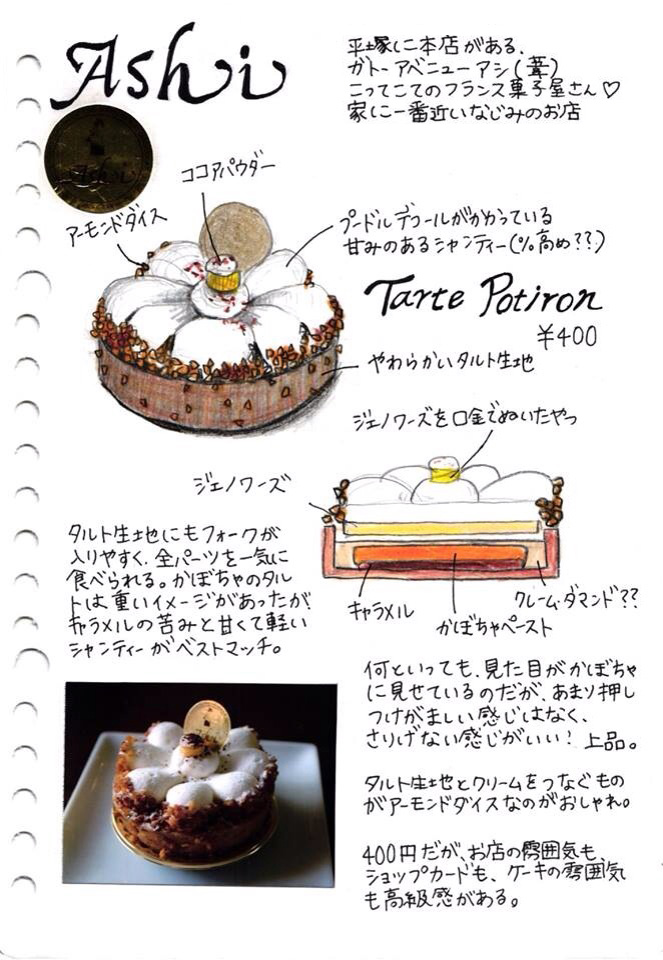 Ashi
平塚に本店がある、
ガトーアベニューアシ(葦)
こってこてのフランス菓子屋さん♡
家に一番近いなじみのお店
Ashi
ココアパウダー
アーモンドダイス
プードルデコールがかかっている
甘みのあるシャンティー(%高め??)
Tarte Potiron
¥400
やわらかいタルト生地
ジェノワーズを口金でぬいたやつ
ジェノワーズ
キャラメル
かぼちゃペースト
クレーム・ダマンド??
タルト生地にもフォークが
入りやすく、全パーツを一気に
食べられる。かぼちゃのタル
トは重いイメージがあったが
キャラメルの苦みと甘くて軽い
シャンティーがベストマッチ。
何といっても、見た目がかぼちゃ
に見せているのだが、あまり押し
つけがましい感じはなく、
さりげない感じがいい! 上品。
タルト生地とクリームをつなぐもの
がアーモンドダイスなのがおしゃれ。
400円だが、お店の雰囲気も、
ショップカードも、ケーキの雰囲気
も高級感がある。